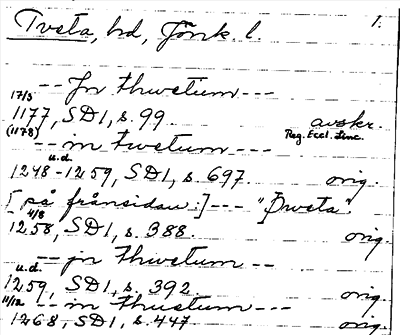 Tvsta, hd, Jönk. l. 1.
--- Jn Thwetium ---
17/3
1177, SD 1, s. 99. avskr.
(1178) Reg. Eccl. Linc.
--- in Twetum ---
u.d.
1248-1259, SD 1, s. 697. orig.
[på frånsidan:] --- "Þwsta".
4/8
1258, SD 1, s. 388. orig.
--- jn Thwetum --
u.d.
1259, SD 1, s. 392. orig.
11/12 -- in Thuetum ---
1268, SD 1, s. 447. orig.